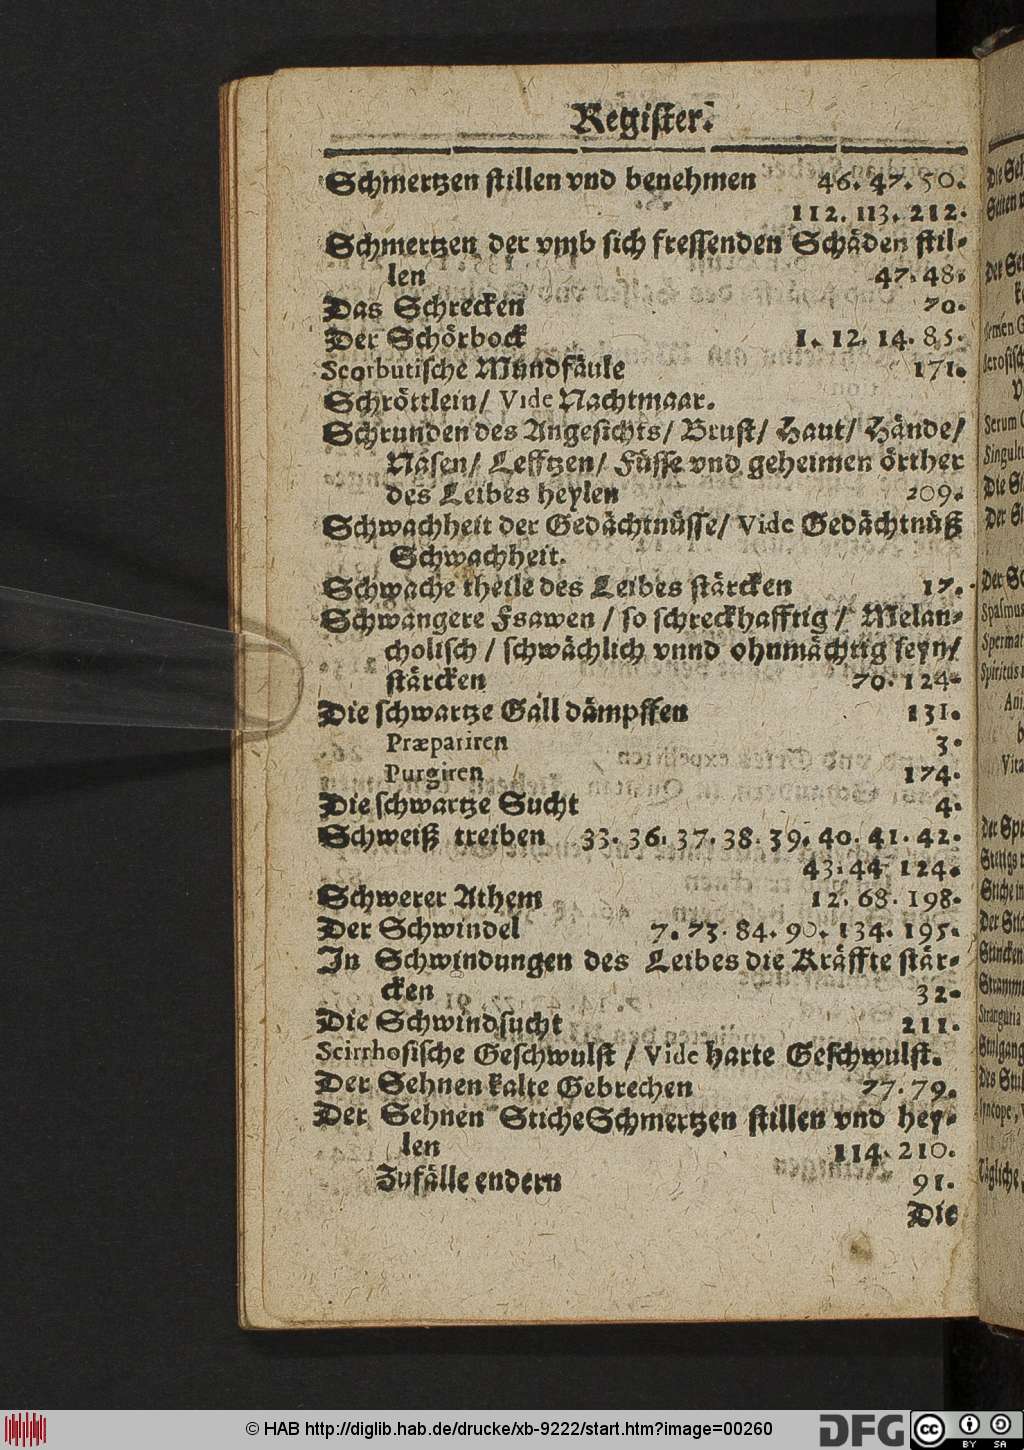 Register.
Schmertzen stillen vnd benehmen 46. 47. 50.
112. 113. 212.
Schmertzen der vmb sich fressenden Schäden stil-
len 47. 48.
Das Schrecken 70.
Der Schörbock 1. 12. 14. 85.
Scorbutische Mundfäule 171.
Schröttlein/ Vide Nachtmaar.
Schrunden des Angesichts/ Brust/ Haut/ Hände/
Nasen/ Lefftzen/ Füsse vnd geheimen örther
des Leibes heylen 209.
Schwachheit der Gedächtnüsse/ Vide Gedächtnüß
Schwachheit.
Schwache theile des Leibes stärcken 17.
Schwangere Frawen / so schreckhafftig / Melan-
cholisch / schwächlich vnnd ohnmächtig seyn/
stärcken 70. 124.
Die schwartze Gall dämpffen 131.
Præpariren 3.
Purgiren 174.
Die schwartze Sucht 4.
Schweiß treiben 33. 36. 37. 38. 39. 40. 41. 42.
43. 44. 124.
Schwerer Athem 12. 68. 198.
Der Schwindel 7. 73. 84. 90. 134. 195.
In Schwindungen des Leibes die Kräffte stär-
cken 32.
Die Schwindsucht 211.
Scirrhosische Geschwulst / Vide harte Geschwulst.
Der Sehnen kalte Gebrechen 77. 79.
Der Sehnen Stiche Schmertzen stillen vnd hey-
len 114. 210.
Zufälle endern 91.
Die
© HAB http://diglib.hab.de/drucke/xb-9222/start.htm?image=00260
DFG
cc
BY SA